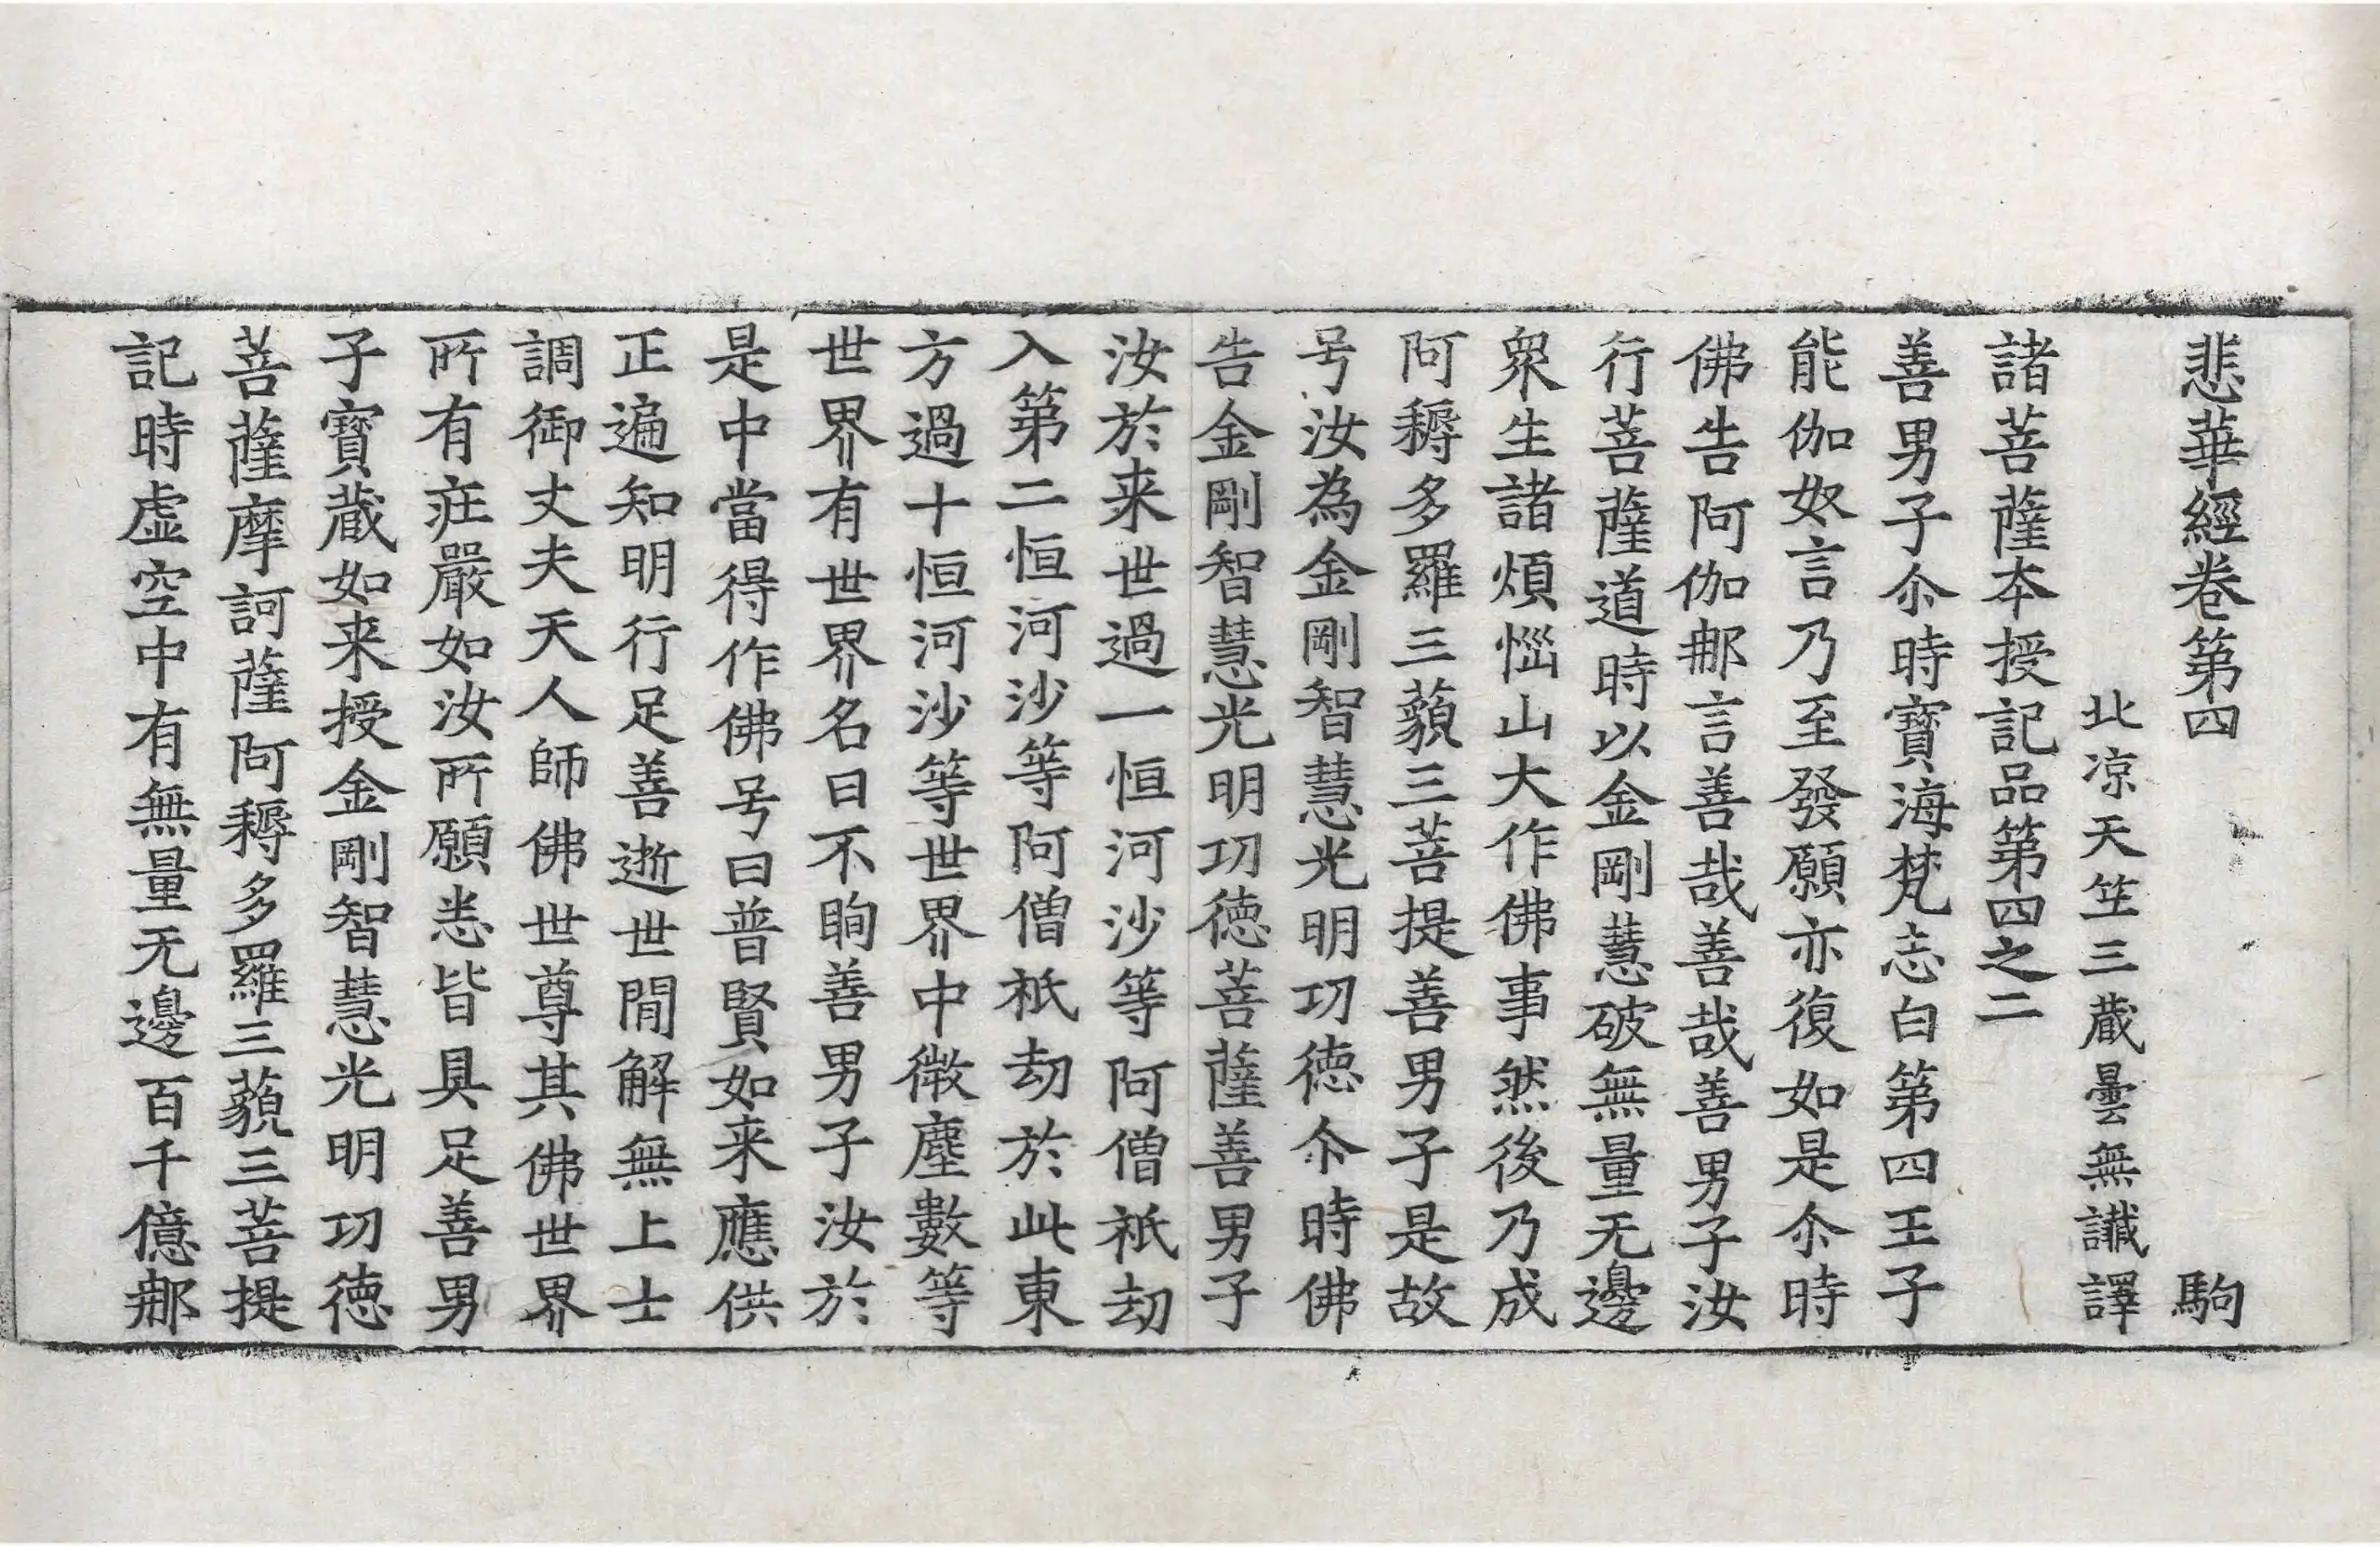 悲華經卷第四 駒
北涼天竺三蔵曇無讖譯
諸菩薩本授記品第四之二
善男子尒時寶海梵志白第四王子
能伽奴言乃至發願亦復如是尒時
佛告阿伽那言善哉善哉善男子汝
行菩薩道時以金剛慧破無量无邊
衆生諸煩惱山大作佛事然後乃成
阿耨多羅三藐三菩提善男子是故
号汝為金剛智慧光明功徳尒時佛
告金剛智慧光明功徳菩薩善男子
汝於来世過一恒河沙等阿僧祇劫
入第二恒河沙等阿僧祇劫於此東
方過十恒河沙等世界中微塵數等
世界有世界名曰不眴善男子汝於
是中當得作佛号曰普賢如来應供
正遍知明行足善逝世間解無上士
調御丈夫天人師佛世尊其佛世界
所有莊嚴如汝所願悉皆具足善男
子寶蔵如来授金剛智慧光明功徳
菩薩摩訶薩阿耨多羅三藐三菩提
記時虚空中有無量无邊百千億那